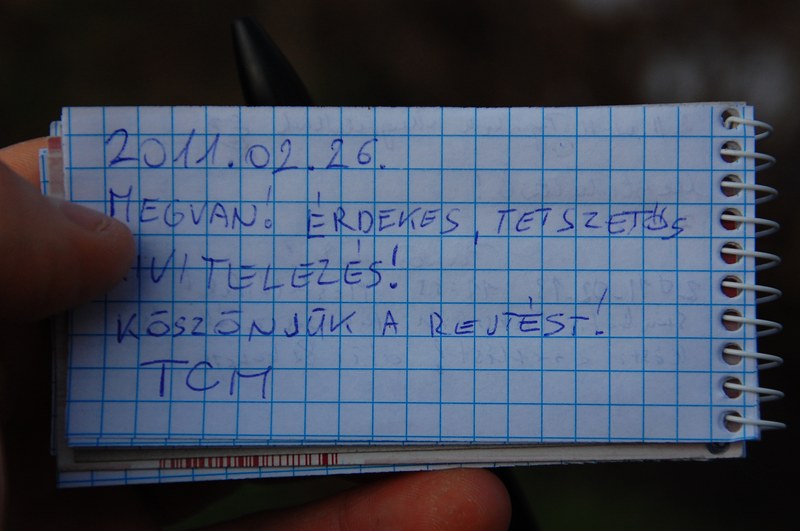 2011.02.26.
MEGVAN! ÉRDEKES, TETSZETŐS
KIVITELEZÉS!
KÖSZÖNJÜK A REJTÉST!
TCM